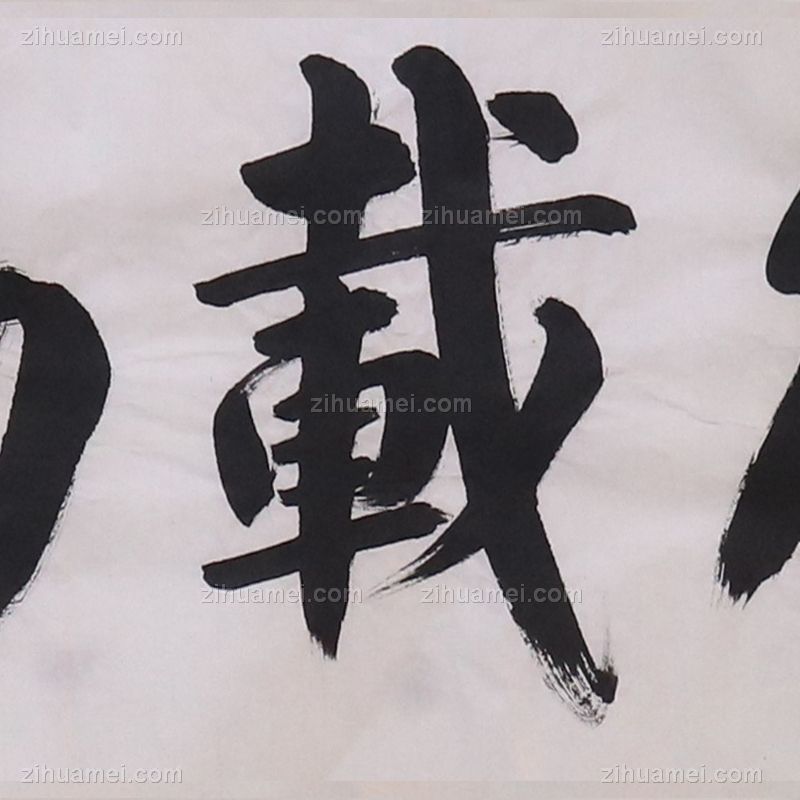 zihuamei.com zihuamei.com
載
zihuamei.com zihuamei.com
zihuamei.com
zihuamei.com zihuamei.com
zihuamei.com zihuamei.com